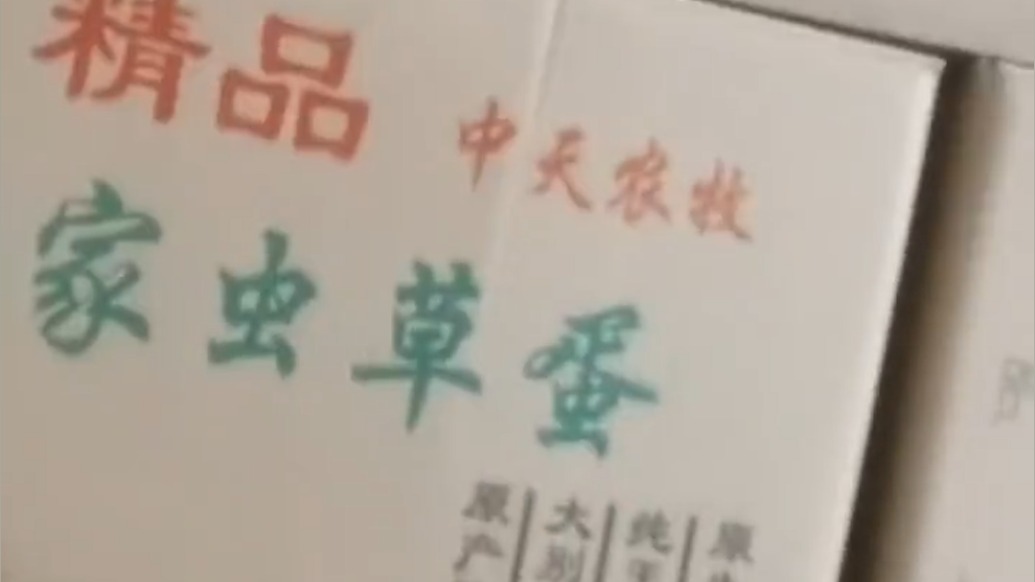 精品
中天农牧
家虫草蛋
原产
大别
纯
原